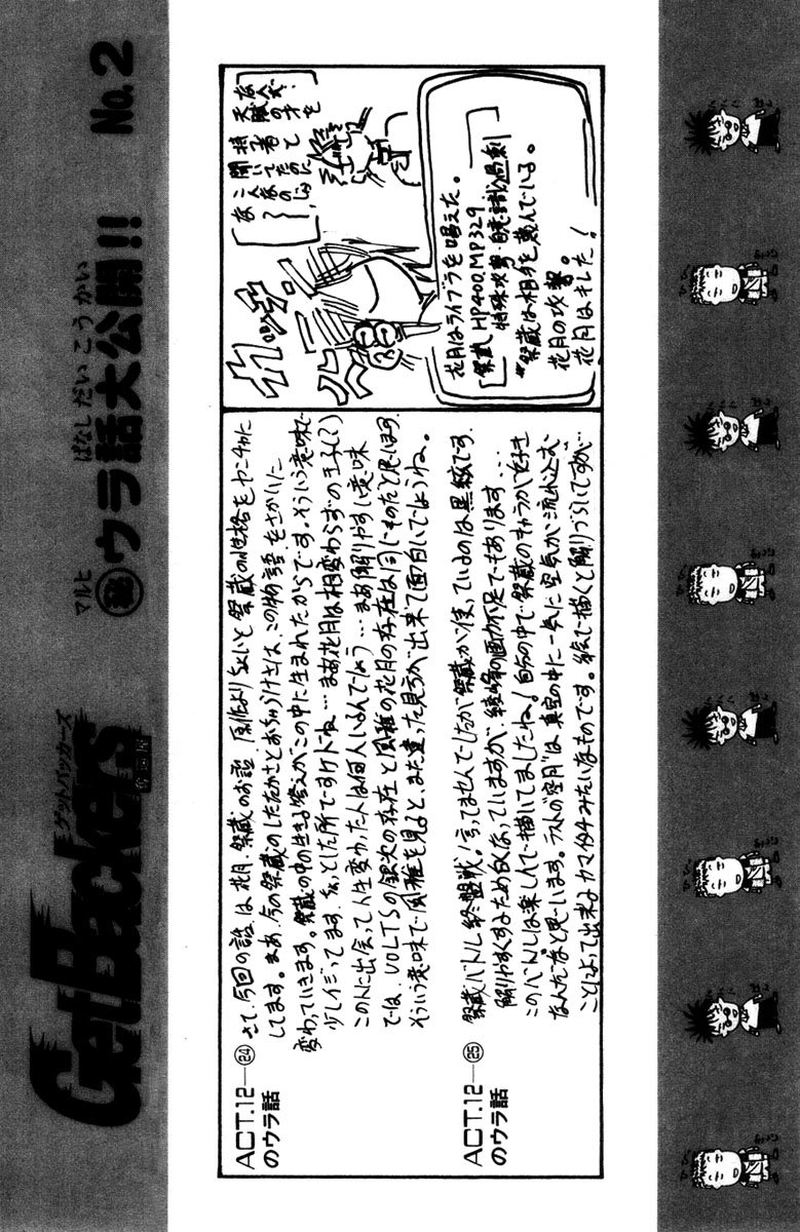 ゲットバッカーズ
GetBackers
奪還屋
マルヒ
㊙ウラ話大公開!!
ばなしだいこうかい
No.2
ACT.12—㉔
のウラ話
さて、今回の話は花月、祭蔵のお話。原作よりちょいと祭蔵の性格をヤンチャに
してます。まあ、今の祭蔵のしたたかさとおちゃらけさは、この物語をさかいに
変わっていきます。祭蔵の中の生きる答えがこの中に生まれたからです。そういう意味で
少しイジってます。ちょっとした所ですケドね…まあ花月は相変わらずの王子(?)
この人に出会って人生変わった人は何人いるんでしょう…まあ解りやすい意味
では、VOLTSの銀次の存在と風雅の花月の存在は同じものだと思います。
そういう意味で風雅を見ると、また違った見方が出来て面白いでしょうね。
ACT.12—㉕
のウラ話
祭蔵バトル終盤戦！言ってませんでしたが祭蔵が使っているのは黒絃です。
解りやすくするため白くなっていますが、綾峰の画力不足でもあります…。
このバトルは楽しんで描いてましたね！自分の中で祭蔵のキャラが大好き
なんだなと思います。ラストの空月は真空の中に一気に空気が流れ込む
ことによって出来るカマイタチみたいなものです。絵で描くと解りづらいですが…
花月はライブラを唱えた。
祭蔵 HP400、MP329
特殊攻撃・自意識過剰
祭蔵は相手を蔑んでいる。
花月の攻撃。
花月はキレた！